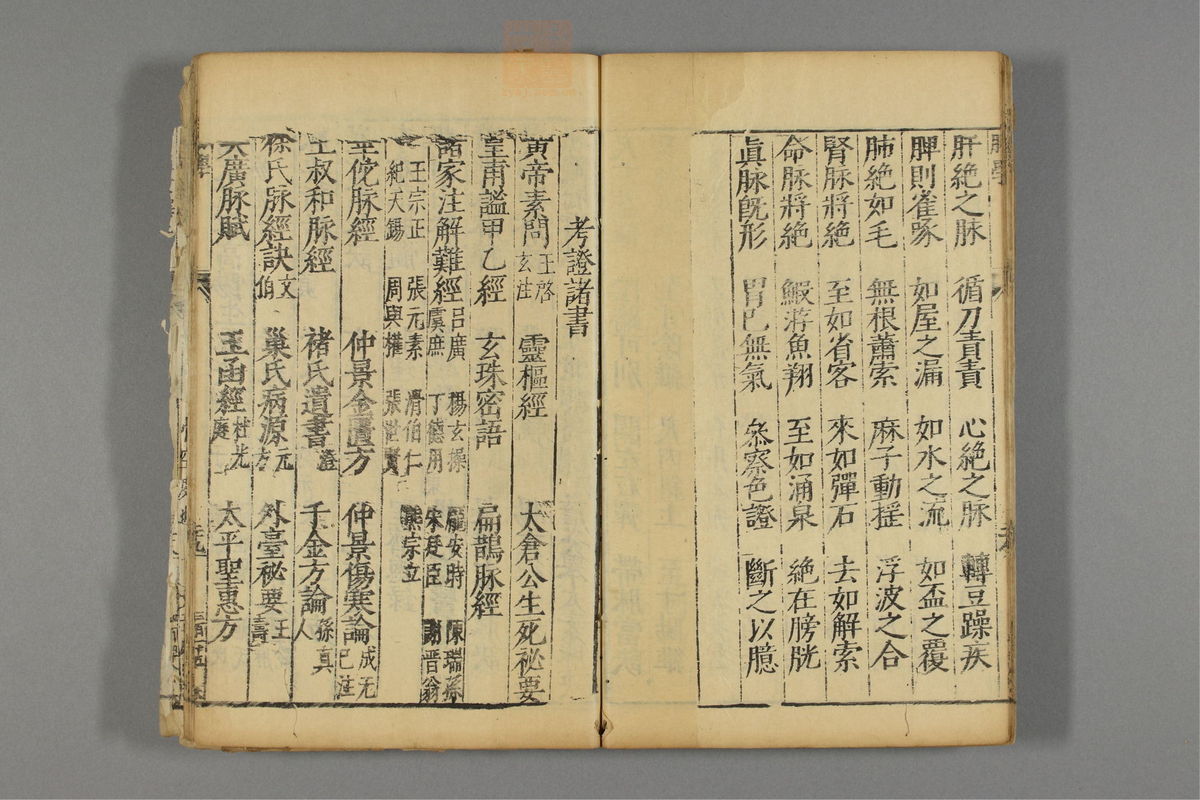 脈學
肝絶之脉 循刀責責 心絶之脉 轉豆躁疾
脾則雀啄 如屋之漏 如水之流 如盃之覆
肺絶如毛 無根蕭索 麻子動揺 浮波之合
腎脉將絶 至如省客 來如彈石 去如解索
命脉將絶 鰕游魚翔 至如涌泉 絶在膀胱
眞脉旣形 胃已無氣 叅察色證 斷之以臆
考證諸書
黄帝素問王啓玄注 靈樞經 太倉公生死祕要
皇甫謐甲乙經 玄珠密語 扁鵲脉經
諸家注解難經吕廣 楊玄操 龐安時 陳瑞孫 虞庶 丁德用 宋廷臣 謝晋翁
王宗正 張元素 滑伯仁 熊宗立 紀天錫 周與權 張世賢
華佗脉經 仲景金匱方 仲景傷寒論成无已注
王叔和脉經 褚氏遺書澄 千金方論孫真人
徐氏脉經訣文伯 巢氏病源元方 外臺祕要王燾
天廣脉賦 玉函經杜光庭 太平聖惠方